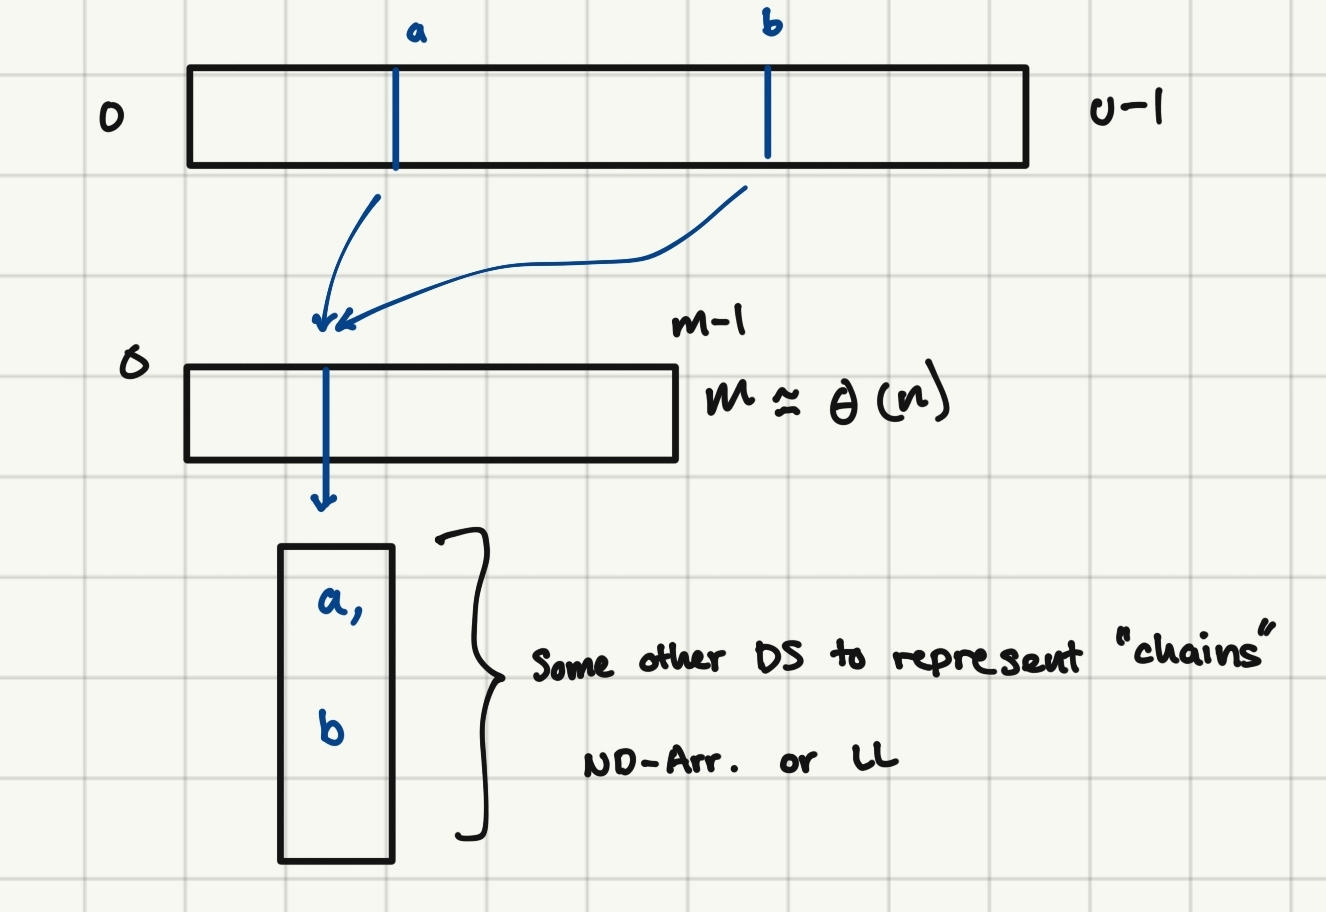 a
b
0
u-1
0
m-1
m ≈ θ(n)
a,
b
Some other DS to represent "chains"
ND-Arr. or LL